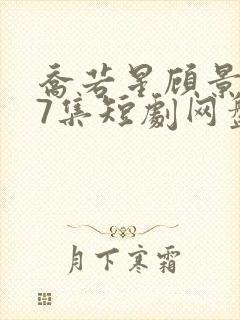 乔若星顾景
7集短剧网盘
月下寒霜